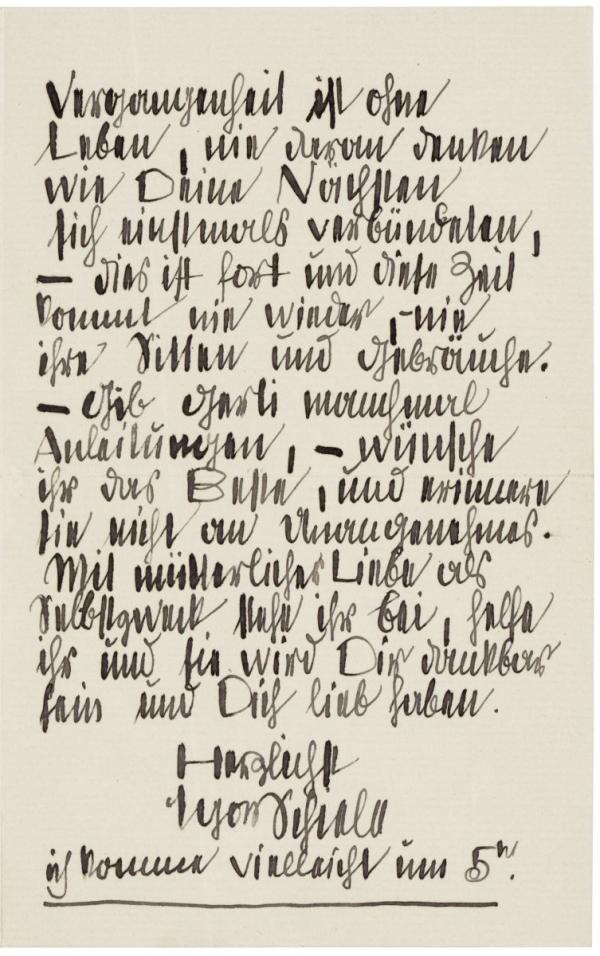 Vergangenheit ist ohne
Leben, nie daran denken
wie Deine Nächsten
sich einstmals verbündeten,
– dies ist fort und diese Zeit
kommt nie wieder, – nie
ihre Sitten und Gebräuche.
– Gib Gerti manchmal
Anleitungen, – wünsche
ihr das Beste, und erinnere
sie nicht an Unangenehmes.
Mit mütterlicher Liebe als
Selbstzweck stehe ihr bei, helfe
ihr und sie wird Dir dankbar
sein und Dich lieb haben.
Herzlichst
Egon Schiele
ich komme vielleicht um 5h.